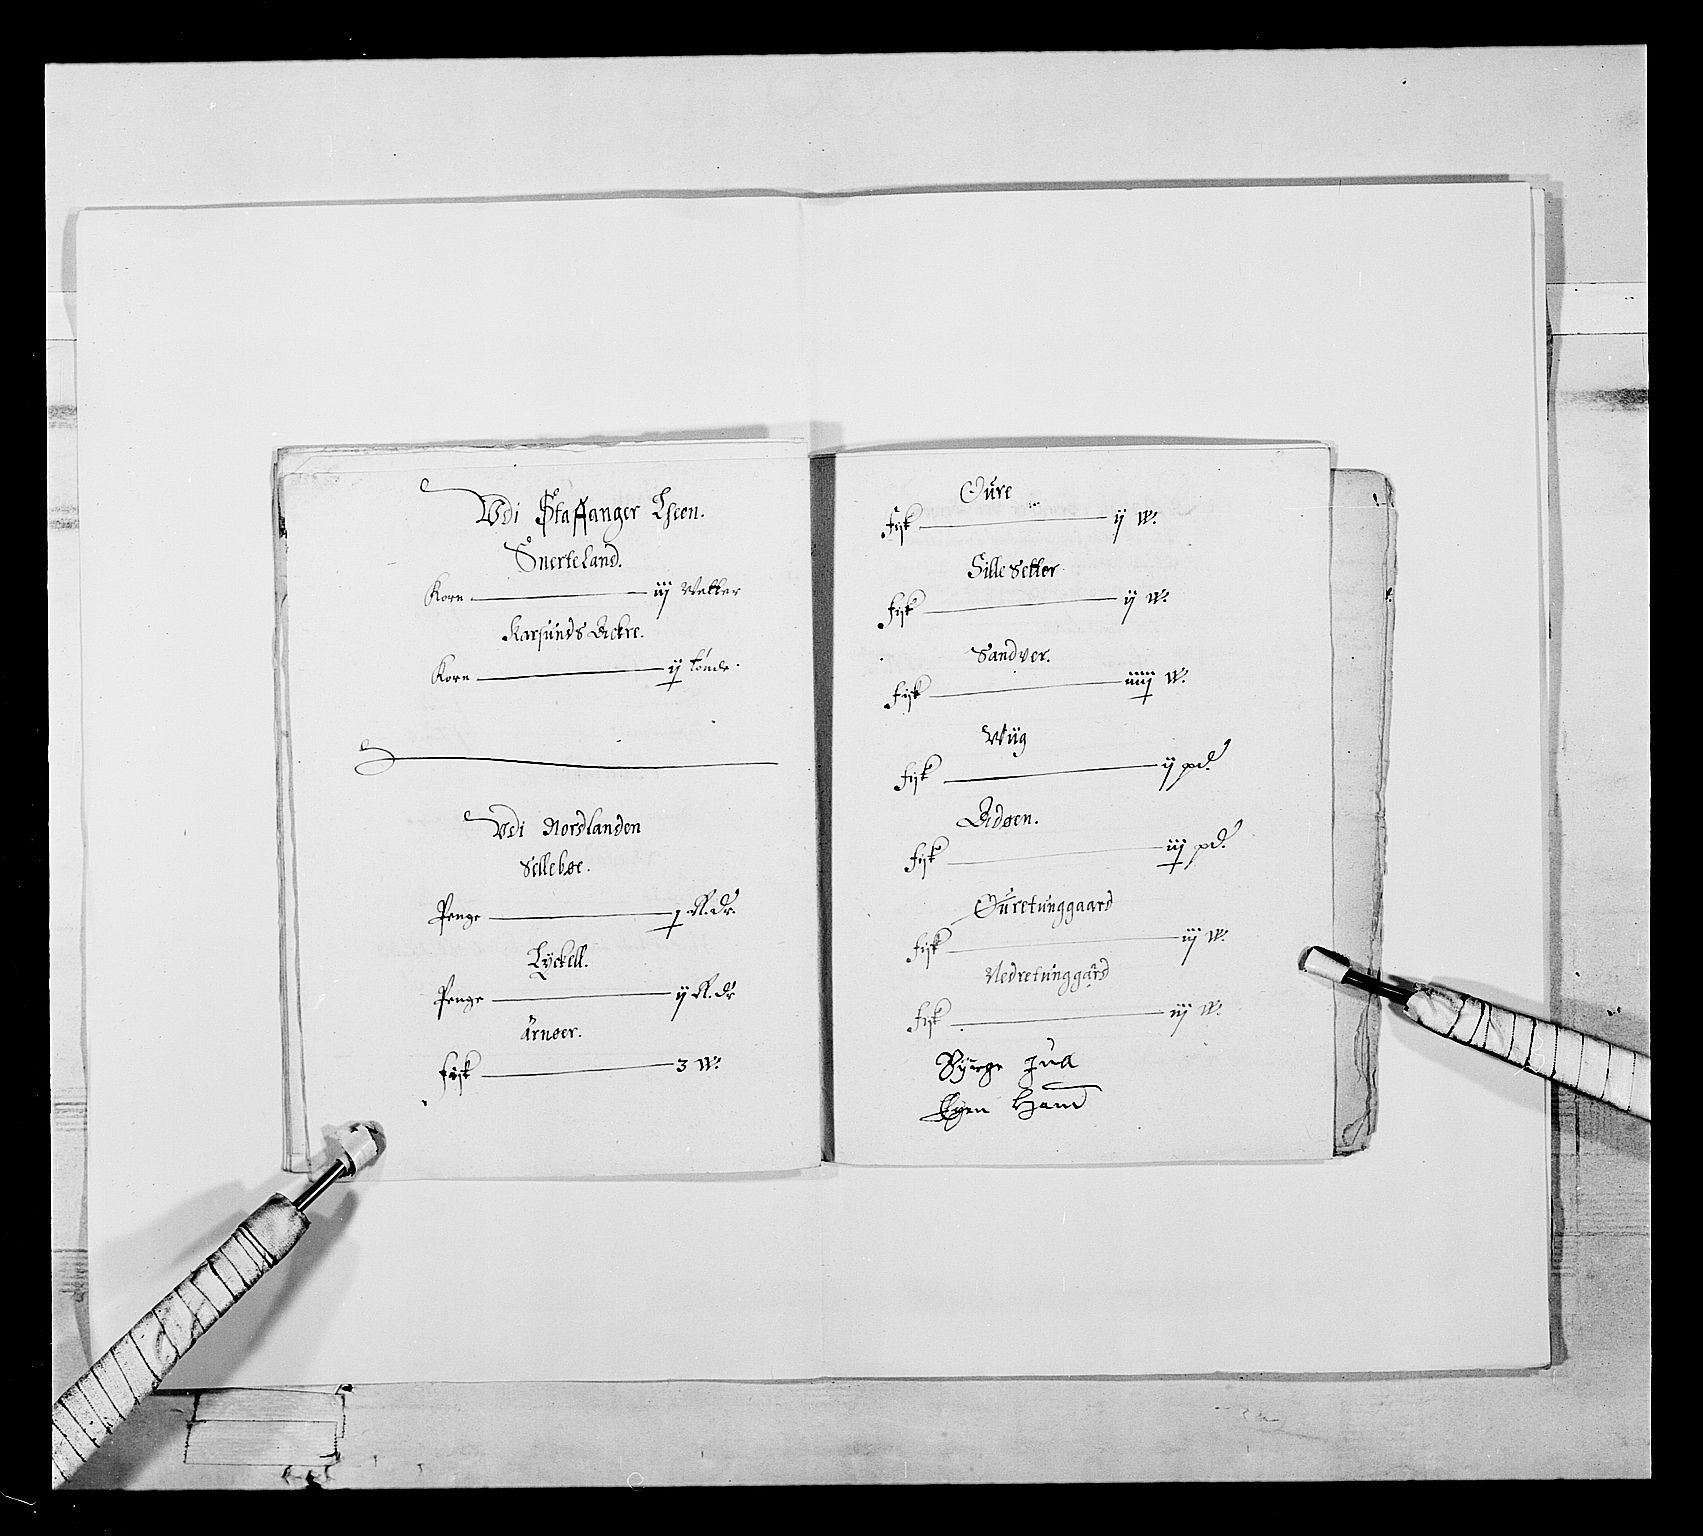 Vdi Staffanger Lheen.
Snerteland.
Korn — iij Vetter
Karsunds Ackre.
Korn — ij tønde.
Vdi Nordlanden
Sellebøe.
Penge — j Rl. dr.
Lyckell.
Penge — ij Rl. dr
Arnøer.
Fisk — 3 W:
Øure
Fisk — ij W:
Sille Setter
Fisk — ij W:
Sandver.
Fisk — iiiij W:
Wiig
Fisk — ij pd:
Aidøen.
Fisk — iij pd:
Øuretunggaard
Fisk — iij W:
Nedretunggård
Fisk — iij W:
Byrge Juel
Egen Hand